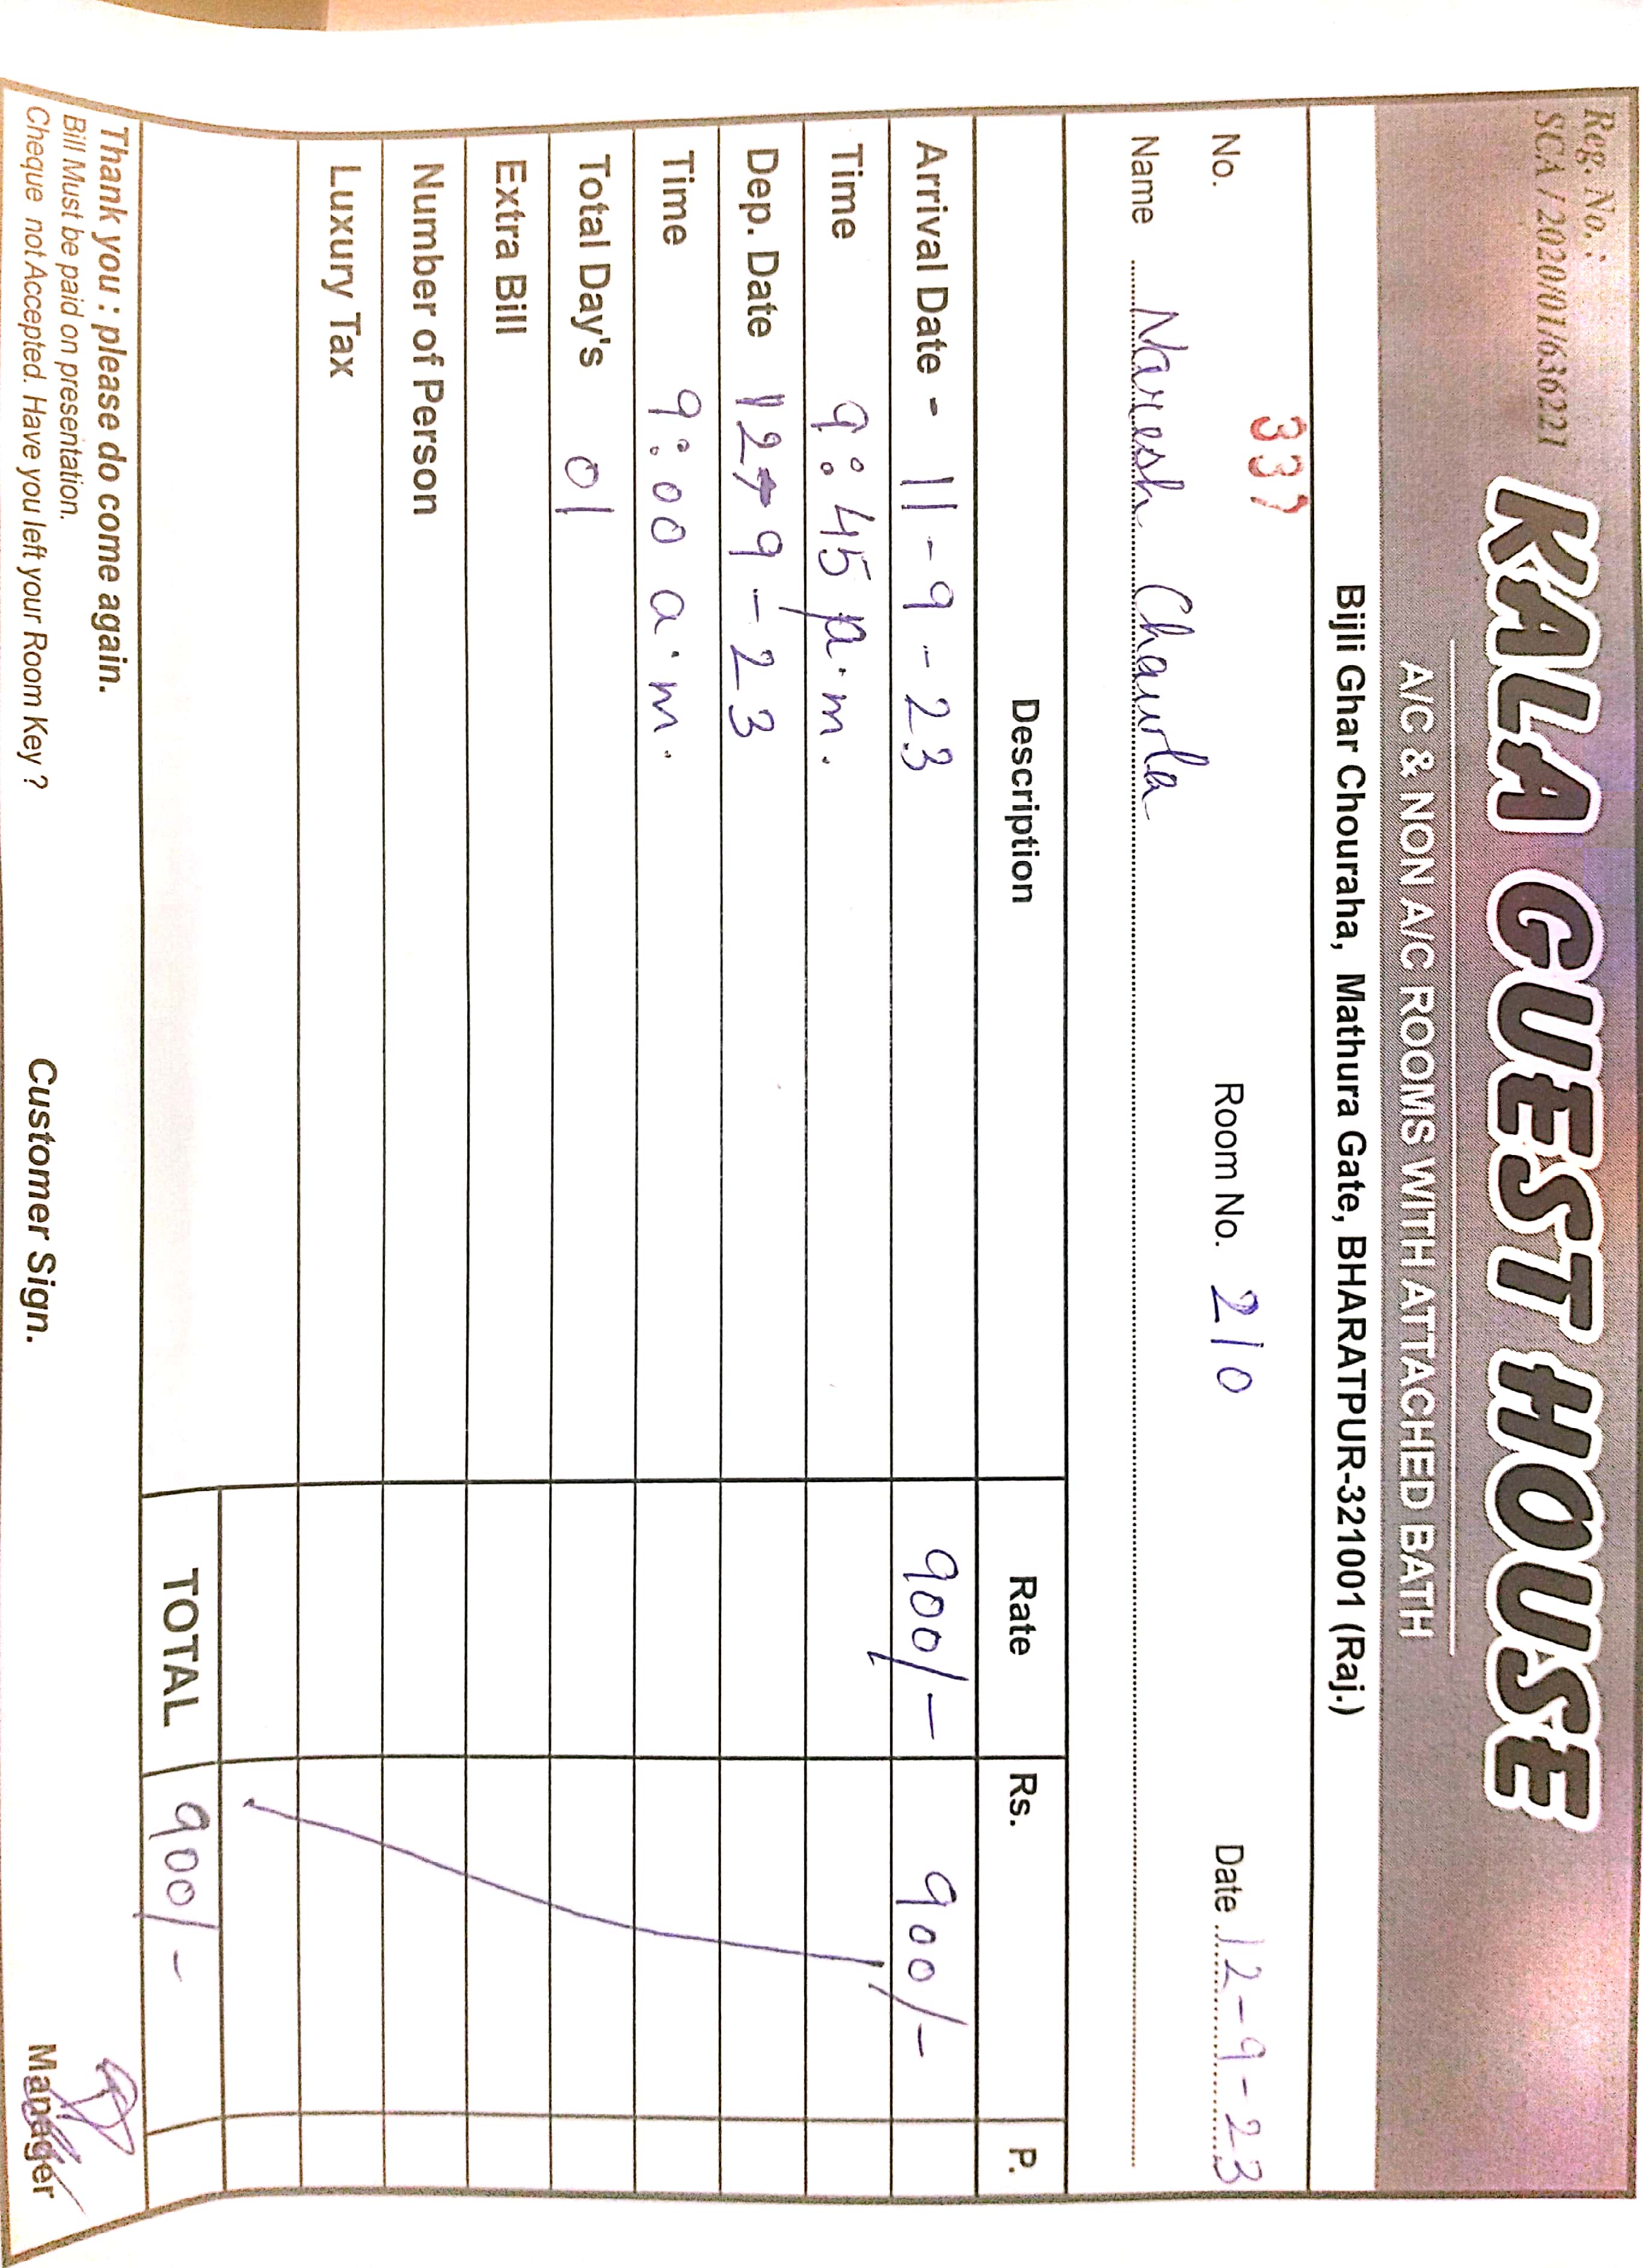 Reg. No. :
SCA / 2020/01/636221
KALA GUEST HOUSE
A/C & NON A/C ROOMS WITH ATTACHED BATH
Bijli Ghar Chouraha, Mathura Gate, BHARATPUR-321001 (Raj.)
No. 337 Room No. 210 Date 12-9-23
Name Naresh Chawla
Description Rate Rs. P.
Arrival Date - 11-9-23 900/- 900/-
Time 9:45 p.m.
Dep. Date 12-9-23
Time 9:00 a.m.
Total Day's 01
Extra Bill
Number of Person
Luxury Tax
TOTAL 900/-
Thank you : please do come again.
Bill Must be paid on presentation.
Cheque not Accepted. Have you left your Room Key ?
Customer Sign.
Manager